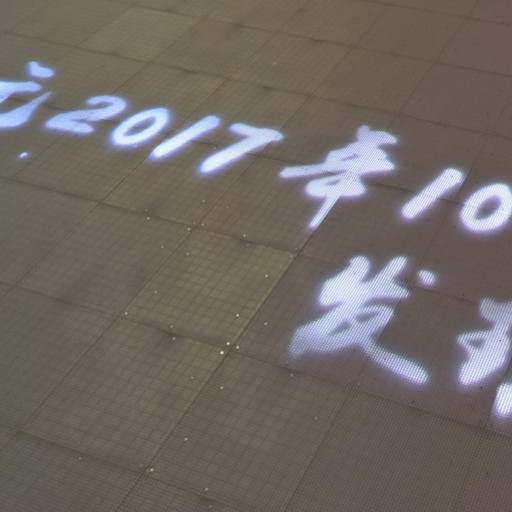 2017年10
发